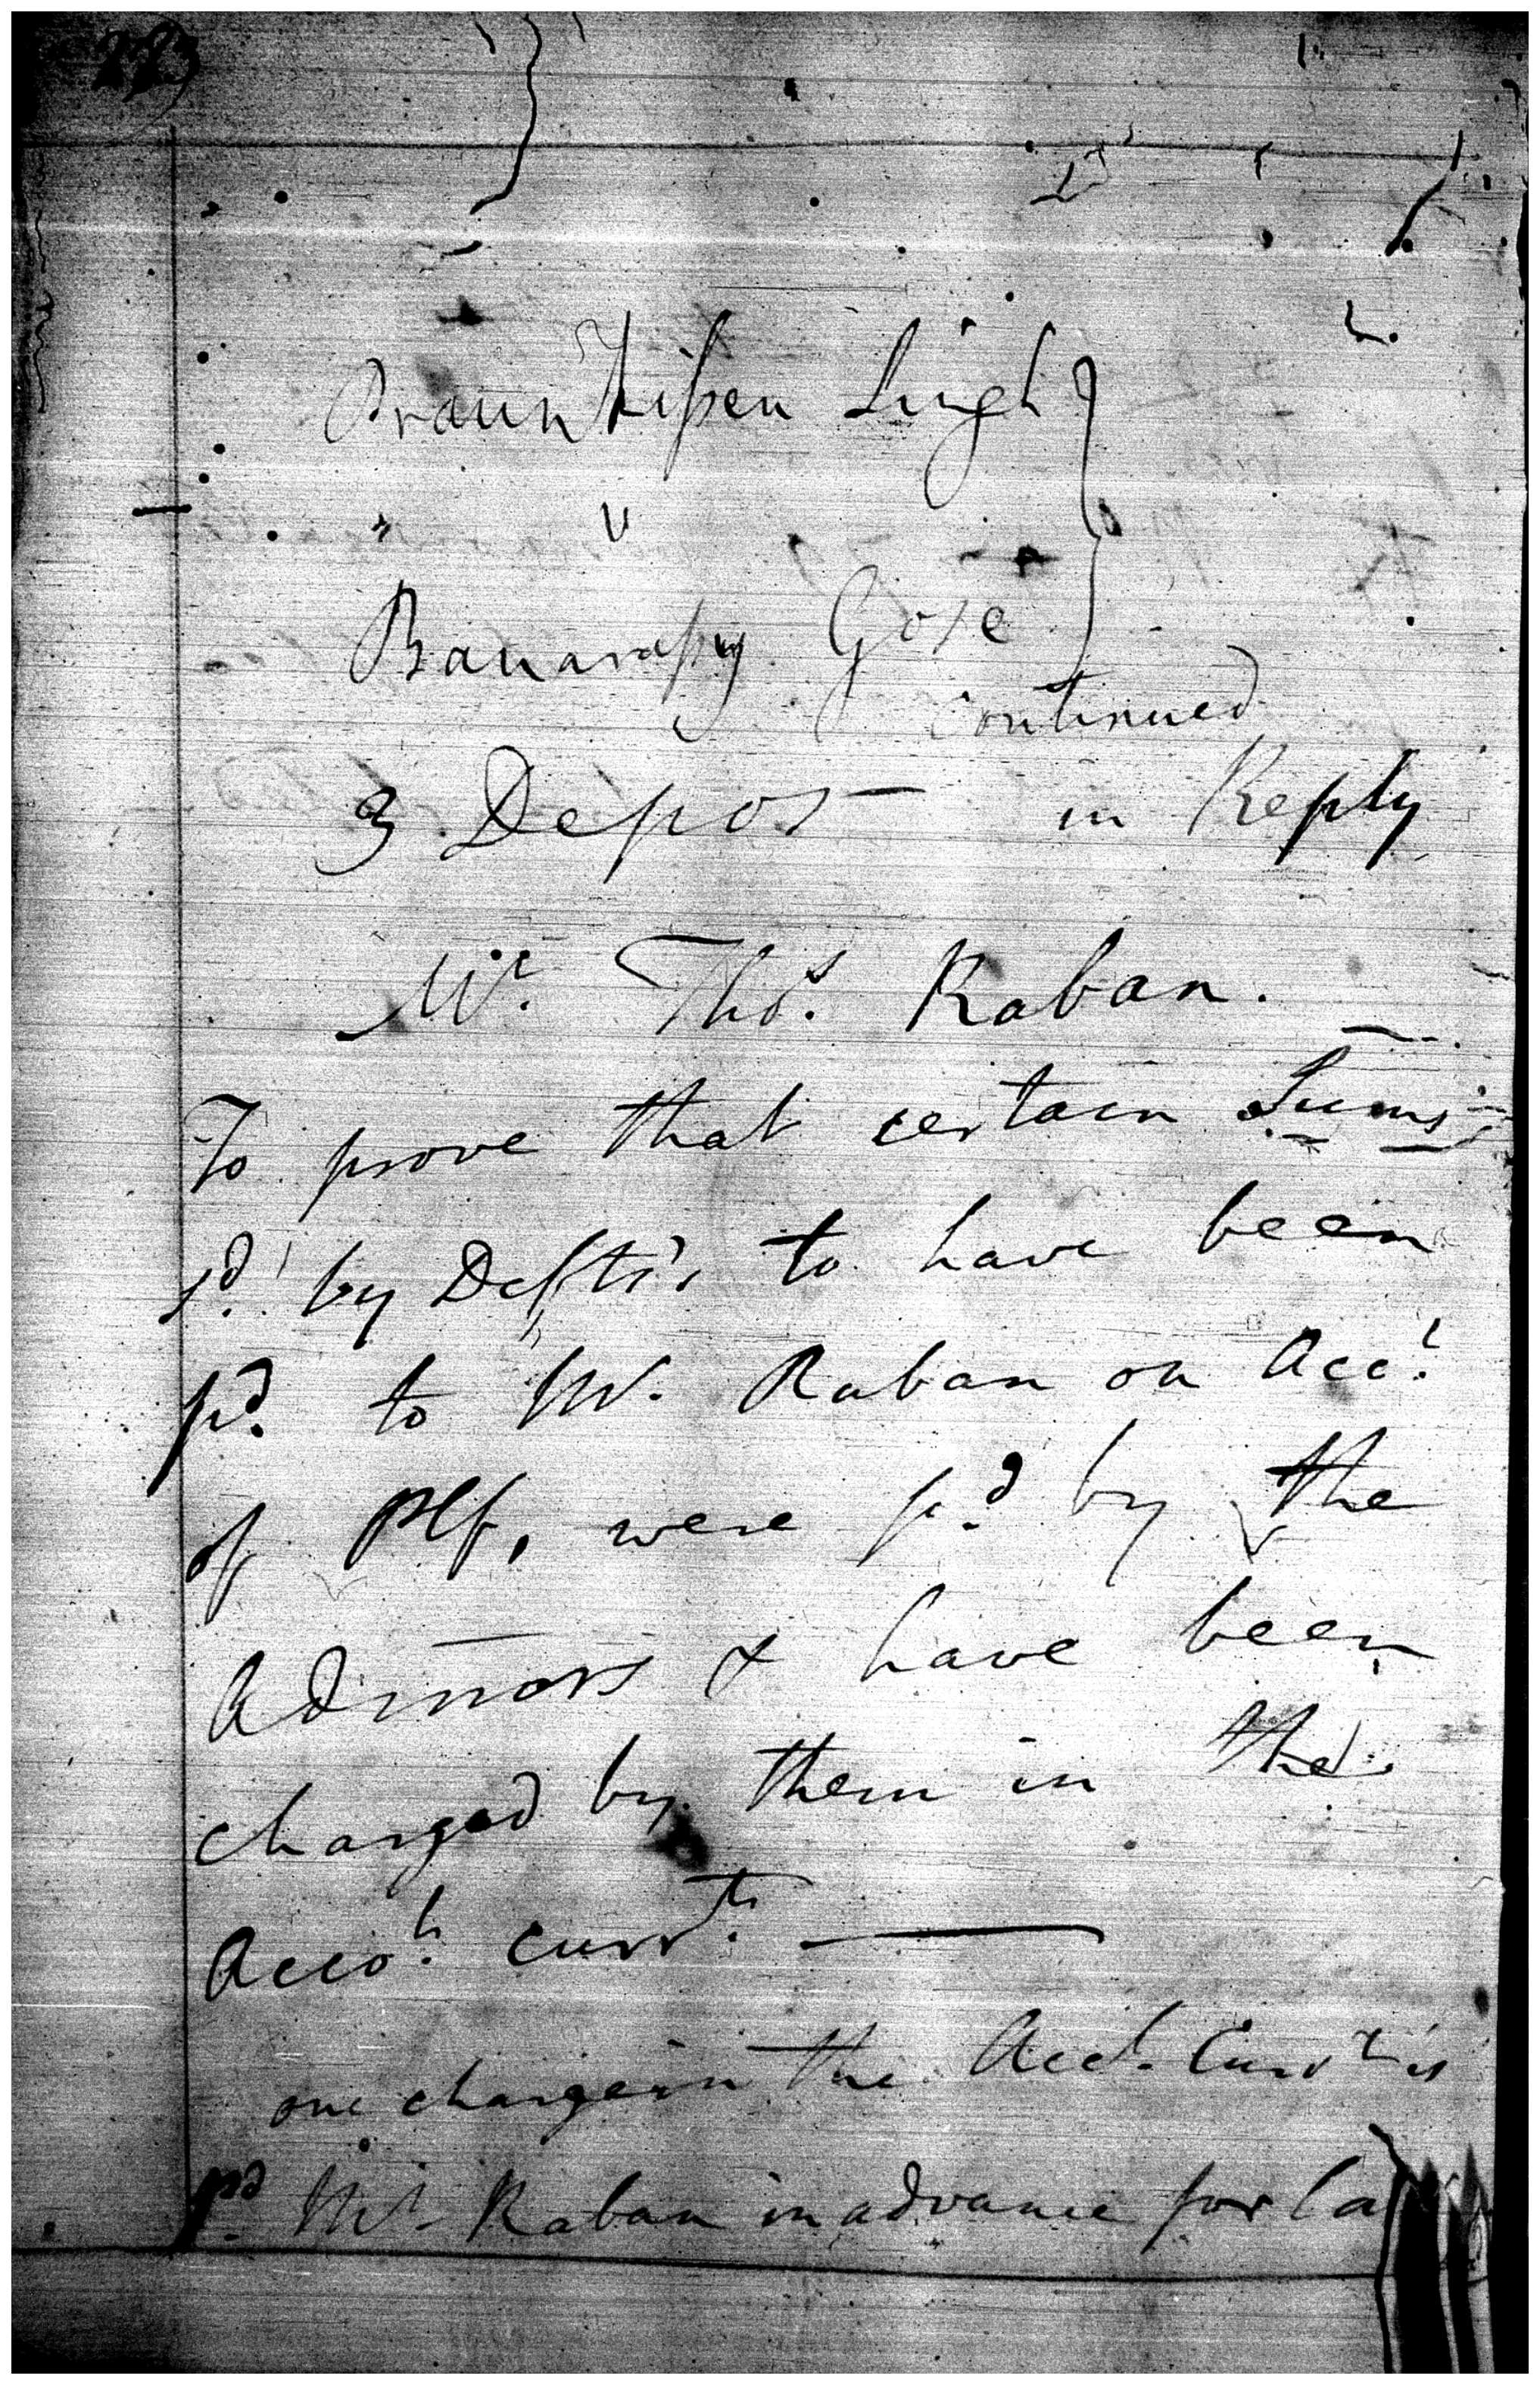 Praun Kissen Singh
v
Banarassy Gose
Continued
3 Depos in Reply
Mr. Thos. Raban.
To prove that certain Sums
sd. by Defts to have been
pd. to Mr. Raban on Acct.
of Plf, were pd. by the
Admors & have been
charged by them in the
Accots. Currts.
one charge in the Acct. Currt is
pd. Mr. Raban in advance for